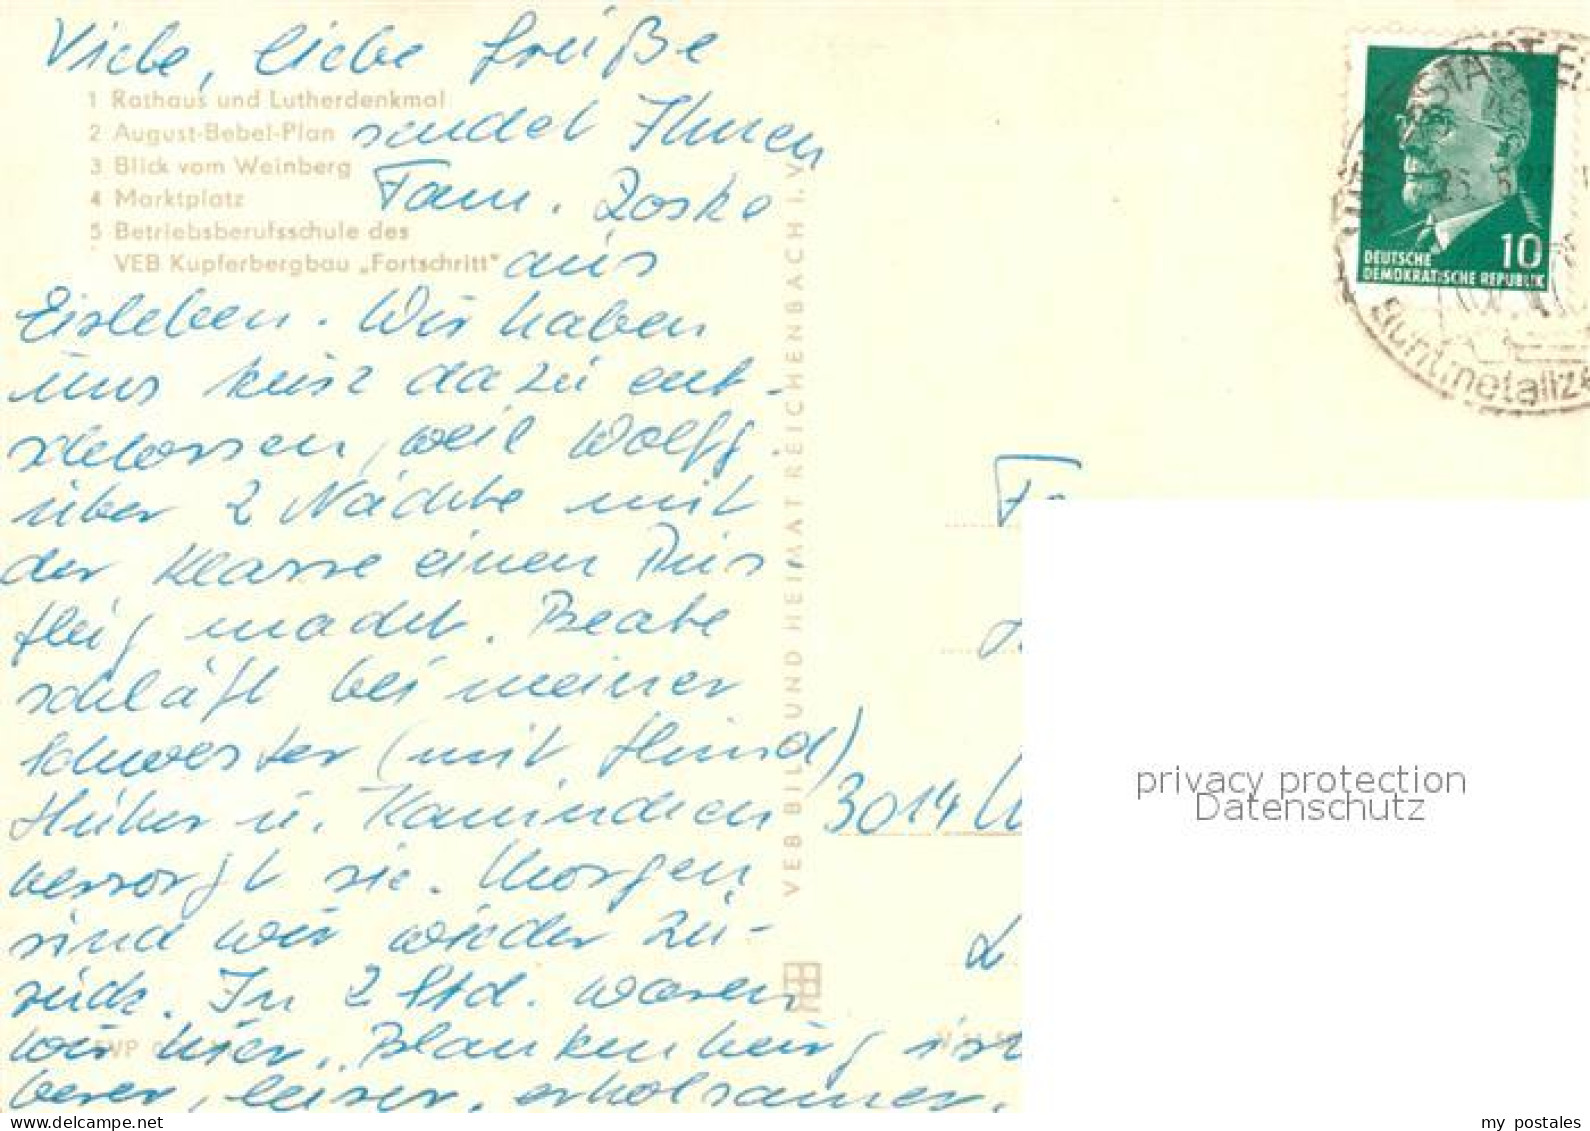 Viele, liebe Grüße
1 Rathaus und Lutherdenkmal
2 August-Bebel-Plan sendet Ihnen
3 Blick vom Weinberg
4 Marktplatz Fam. Roske
5 Betriebsberufsschule des
VEB Kupferbergbau „Fortschritt" aus
Eisleben. Wir haben
uns kurz dazu ent-
schlossen, weil Wolfg.
über 2 Nächte mit
der Klasse einen Aus
flug macht. Beate
schläft bei meiner
Schwester (mit Hund)
Hühner u. Kaninchen
versorgt sie. Morgen
sind wir wieder zu-
rück. In 2 Std. waren
wir hier. Blankenburg ist
leiser, erholsamer.
VEB BILD UND HEIMAT REICHENBACH I. V.
DEUTSCHE
DEMOKRATISCHE REPUBLIK
10
3014
privacy protection
Datenschutz
my postales